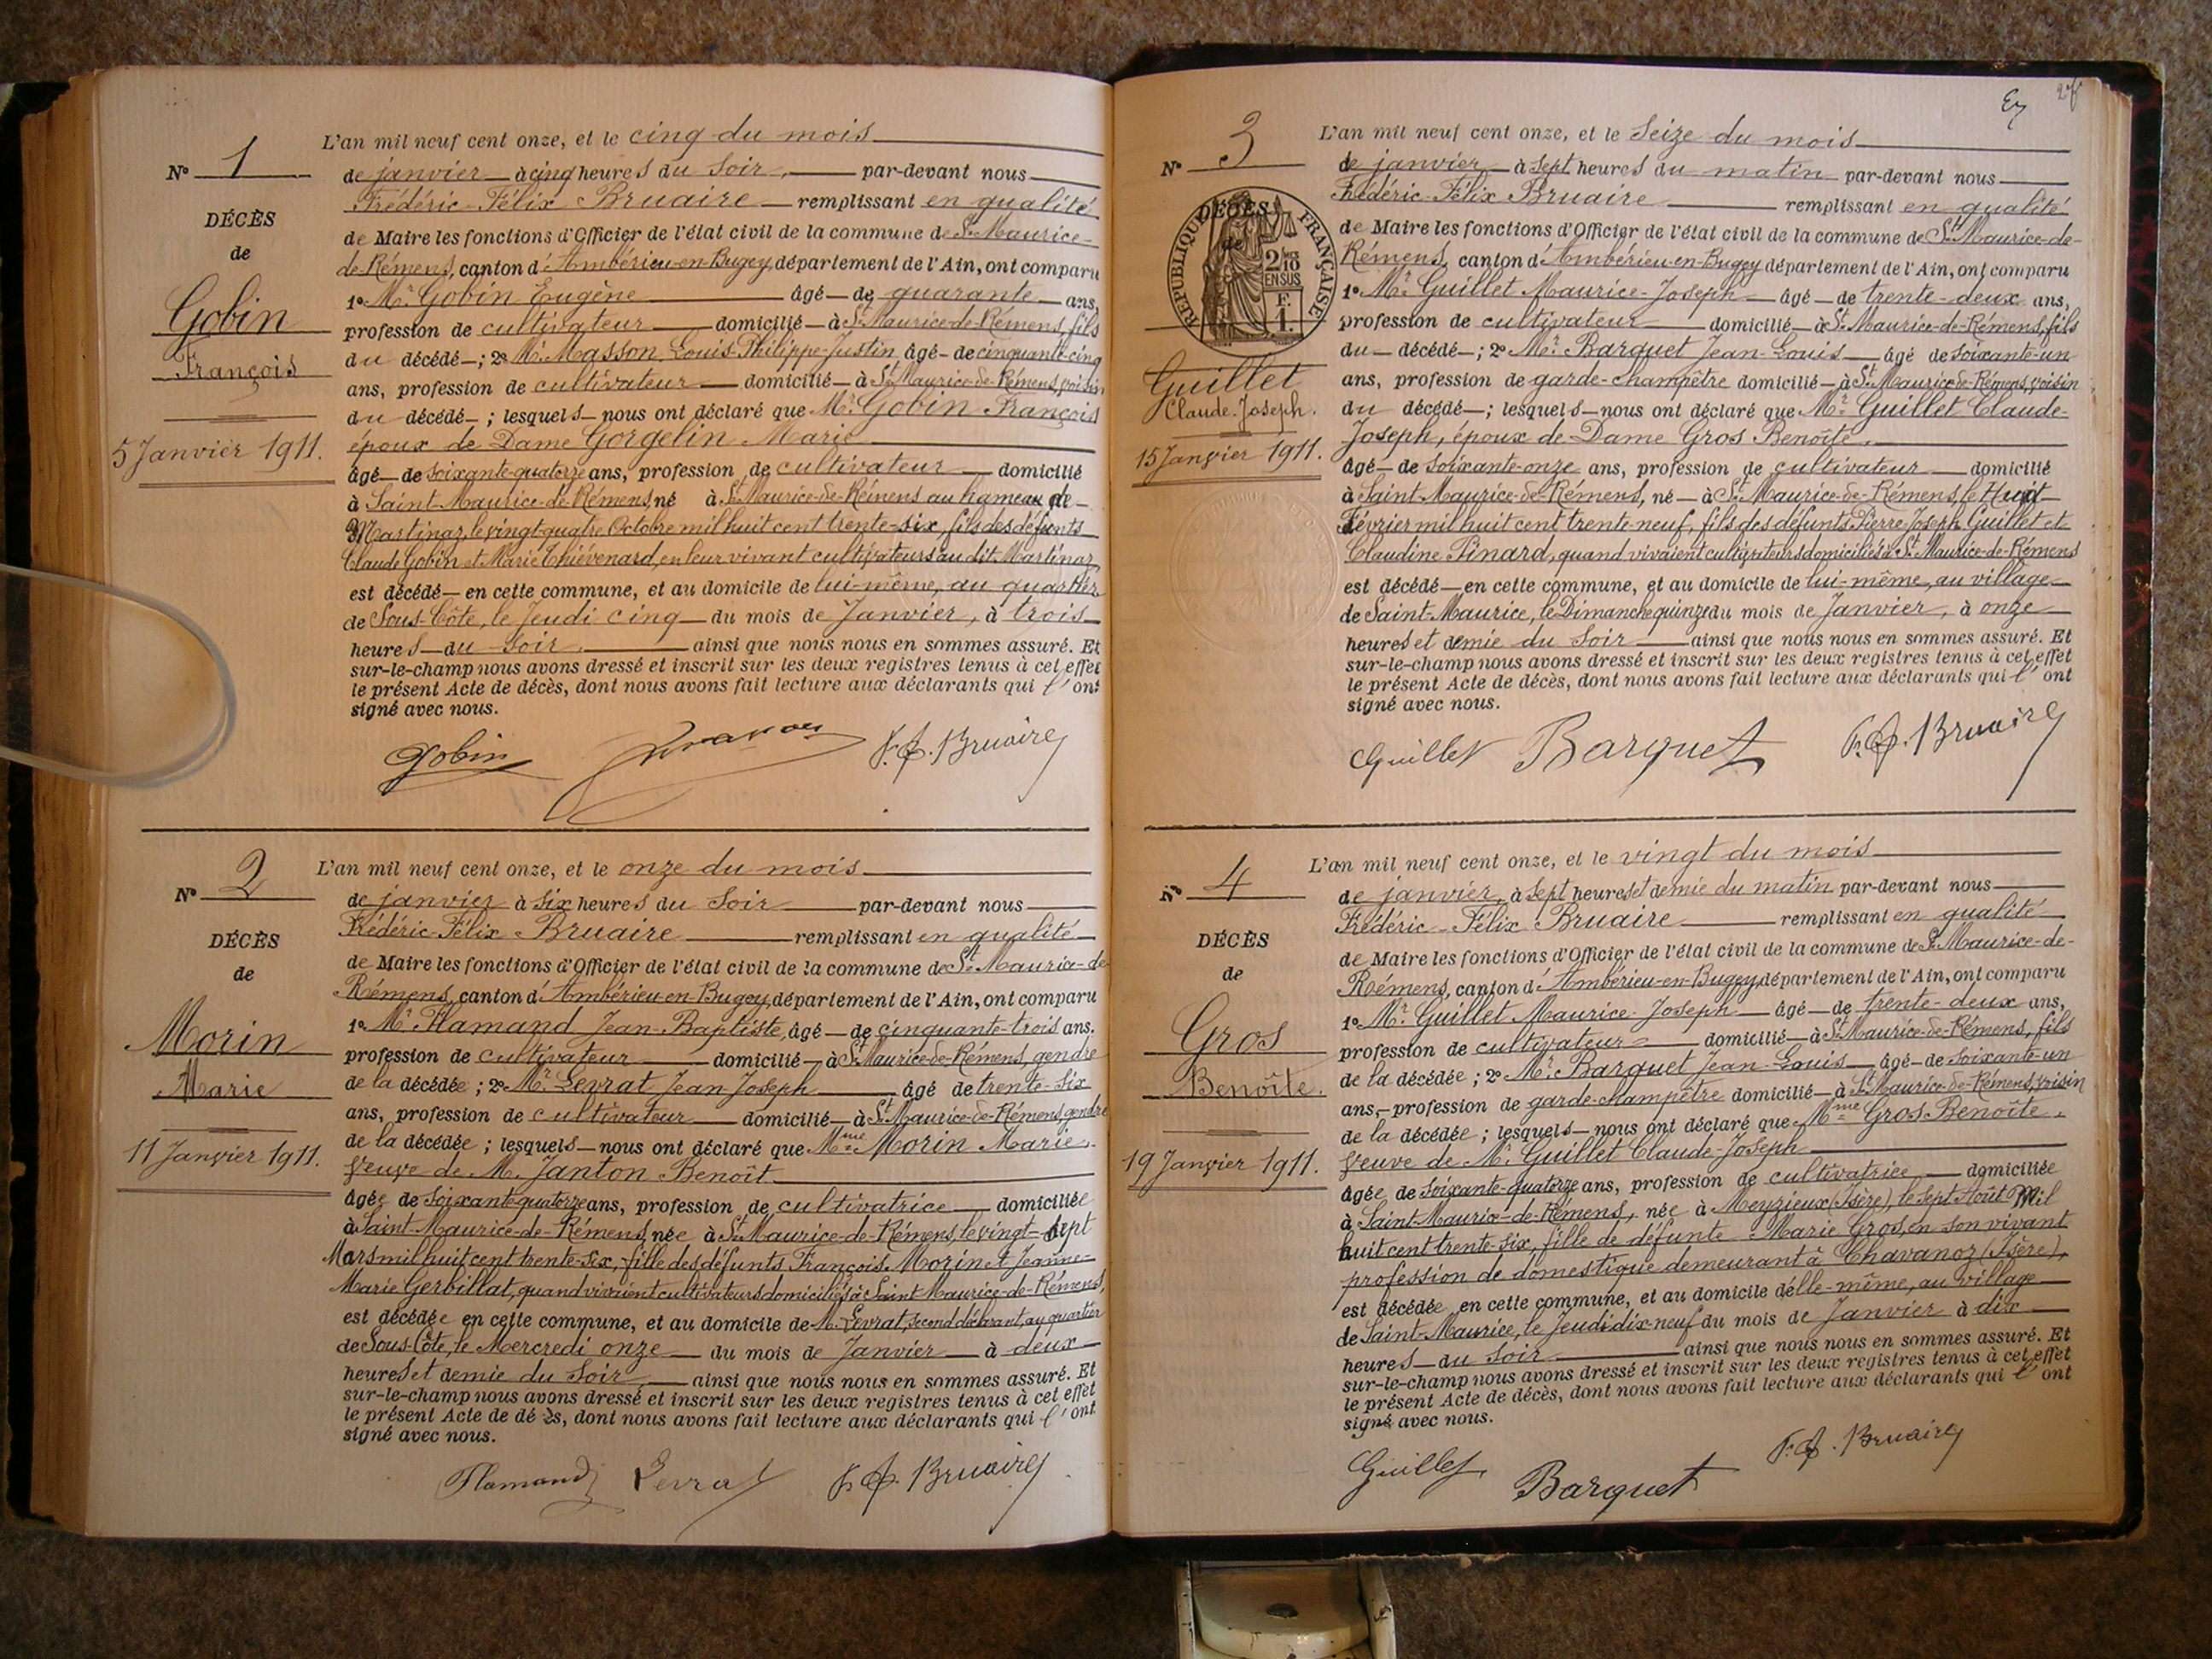 N° 1
DÉCÈS
de
Gobin
François
5 Janvier 1911.
L'an mil neuf cent onze, et le cinq du mois
de janvier à cinq heures du soir, par-devant nous
Frédéric-Félix Bruaire remplissant en qualité
de Maire les fonctions d'Officier de l'état civil de la commune de St Maurice-
de-Rémens, canton d'Ambérieu-en-Bugey, département de l'Ain, ont comparu
1° Mr Gobin Eugène âgé de quarante ans,
profession de cultivateur domicilié à St Maurice-de-Rémens, fils
du décédé ; 2° Mr Masson Louis-Philippe-Justin âgé de cinquante-cinq
ans, profession de cultivateur domicilié à St Maurice-de-Rémens, voisin
du décédé ; lesquels nous ont déclaré que Mr Gobin François
époux de Dame Gorgelin Marie
âgé de soixante-quatorze ans, profession de cultivateur domicilié
à Saint-Maurice-de-Rémens, né à St Maurice-de-Rémens au hameau de
Martinaz, le vingt-quatre Octobre mil huit cent trente-six, fils des défunts
Claude Gobin et Marie Thiévenard, en leur vivant cultivateurs au dit Martinaz,
est décédé en cette commune, et au domicile de lui-même, au quartier
de Sous-Côte, le Jeudi cinq du mois de Janvier, à trois
heures du soir, ainsi que nous nous en sommes assuré. Et
sur-le-champ nous avons dressé et inscrit sur les deux registres tenus à cet effet
le présent Acte de décès, dont nous avons fait lecture aux déclarants qui l'ont
signé avec nous.
Gobin F. F. Bruaire
N° 2
DÉCÈS
de
Morin
Marie
11 Janvier 1911.
L'an mil neuf cent onze, et le onze du mois
de janvier à six heures du soir par-devant nous
Frédéric-Félix Bruaire remplissant en qualité
de Maire les fonctions d'Officier de l'état civil de la commune de St Maurice-de-
Rémens, canton d'Ambérieu-en-Bugey, département de l'Ain, ont comparu
1° Mr Flamand Jean-Baptiste, âgé de cinquante-trois ans.
profession de cultivateur domicilié à St Maurice-de-Rémens, gendre
de la décédée ; 2° Mr Levrat Jean-Joseph âgé de trente-six
ans, profession de cultivateur domicilié à St Maurice-de-Rémens, gendre
de la décédée ; lesquels nous ont déclaré que Mme Morin Marie,
veuve de M. Janton Benoît
âgée de soixante-quatorze ans, profession de cultivatrice domiciliée
à Saint-Maurice-de-Rémens, née à St Maurice-de-Rémens, le vingt-sept
Mars mil huit cent trente-six, fille des défunts François Morin et Jeanne-
Marie Gerbillat, quand vivaient cultivateurs domiciliés à Saint-Maurice-de-Rémens,
est décédée en cette commune, et au domicile de M. Levrat, second déclarant, au quartier
de Sous-Côte, le Mercredi onze du mois de Janvier à deux
heures et demie du soir ainsi que nous nous en sommes assuré. Et
sur-le-champ nous avons dressé et inscrit sur les deux registres tenus à cet effet
le présent Acte de dé ès, dont nous avons fait lecture aux déclarants qui l'ont
signé avec nous.
Flamand Levrat F. F. Bruaire
N° 3
DÉCÈS
de
RÉPUBLIQUE FRANÇAISE
2/10
EN SUS
F.
1.
Guillet
Claude-Joseph.
15 Janvier 1911.
L'an mil neuf cent onze, et le seize du mois
de janvier à sept heures du matin par-devant nous
Frédéric-Félix Bruaire remplissant en qualité
de Maire les fonctions d'Officier de l'état civil de la commune de St Maurice-de-
Rémens, canton d'Ambérieu-en-Bugey département de l'Ain, ont comparu
1° Mr Guillet Maurice-Joseph âgé de trente-deux ans,
profession de cultivateur domicilié à St Maurice-de-Rémens, fils
du décédé ; 2° Mr Barquet Jean-Louis âgé de soixante-un
ans, profession de garde-champêtre domicilié à St Maurice-de-Rémens, voisin
du décédé ; lesquels nous ont déclaré que Mr Guillet Claude-
Joseph, époux de Dame Gros Benoîte.
âgé de soixante-onze ans, profession de cultivateur domicilié
à Saint-Maurice-de-Rémens, né à St Maurice-de-Rémens, le Huit
Février mil huit cent trente-neuf, fils des défunts Pierre-Joseph Guillet et
Claudine Pinard, quand vivaient cultivateurs domiciliés à St Maurice-de-Rémens
est décédé en cette commune, et au domicile de lui-même, au village
de Saint-Maurice, le Dimanche quinze du mois de Janvier, à onze
heures et demie du soir ainsi que nous nous en sommes assuré. Et
sur-le-champ nous avons dressé et inscrit sur les deux registres tenus à cet effet
le présent Acte de décès, dont nous avons fait lecture aux déclarants qui l'ont
signé avec nous.
Guillet Barquet F. F. Bruaire
N° 4
DÉCÈS
de
Gros
Benoîte.
19 Janvier 1911.
L'an mil neuf cent onze, et le vingt du mois
de janvier, à sept heures et demie du matin par-devant nous
Frédéric-Félix Bruaire remplissant en qualité
de Maire les fonctions d'Officier de l'état civil de la commune de St Maurice-de-
Rémens, canton d'Ambérieu-en-Bugey, département de l'Ain, ont comparu
1° Mr Guillet Maurice-Joseph âgé de trente-deux ans,
profession de cultivateur domicilié à St Maurice-de-Rémens, fils
de la décédée ; 2° Mr Barquet Jean-Louis âgé de soixante-un
ans, profession de garde-champêtre domicilié à St Maurice-de-Rémens, voisin
de la décédée ; lesquels nous ont déclaré que Mme Gros Benoîte,
veuve de M. Guillet Claude-Joseph
âgée de soixante-quatorze ans, profession de cultivatrice domiciliée
à Saint-Maurice-de-Rémens, née à Meyzieux (Isère), le sept Août Mil
huit cent trente-six, fille de défunte Marie Gros, en son vivant
profession de domestique demeurant à Chavanoz (Isère),
est décédée en cette commune, et au domicile d'elle-même, au village
de Saint-Maurice, le Jeudi dix-neuf du mois de Janvier à dix
heures du soir ainsi que nous nous en sommes assuré. Et
sur-le-champ nous avons dressé et inscrit sur les deux registres tenus à cet effet
le présent Acte de décès, dont nous avons fait lecture aux déclarants qui l'ont
signé avec nous.
Guillet Barquet F. F. Bruaire